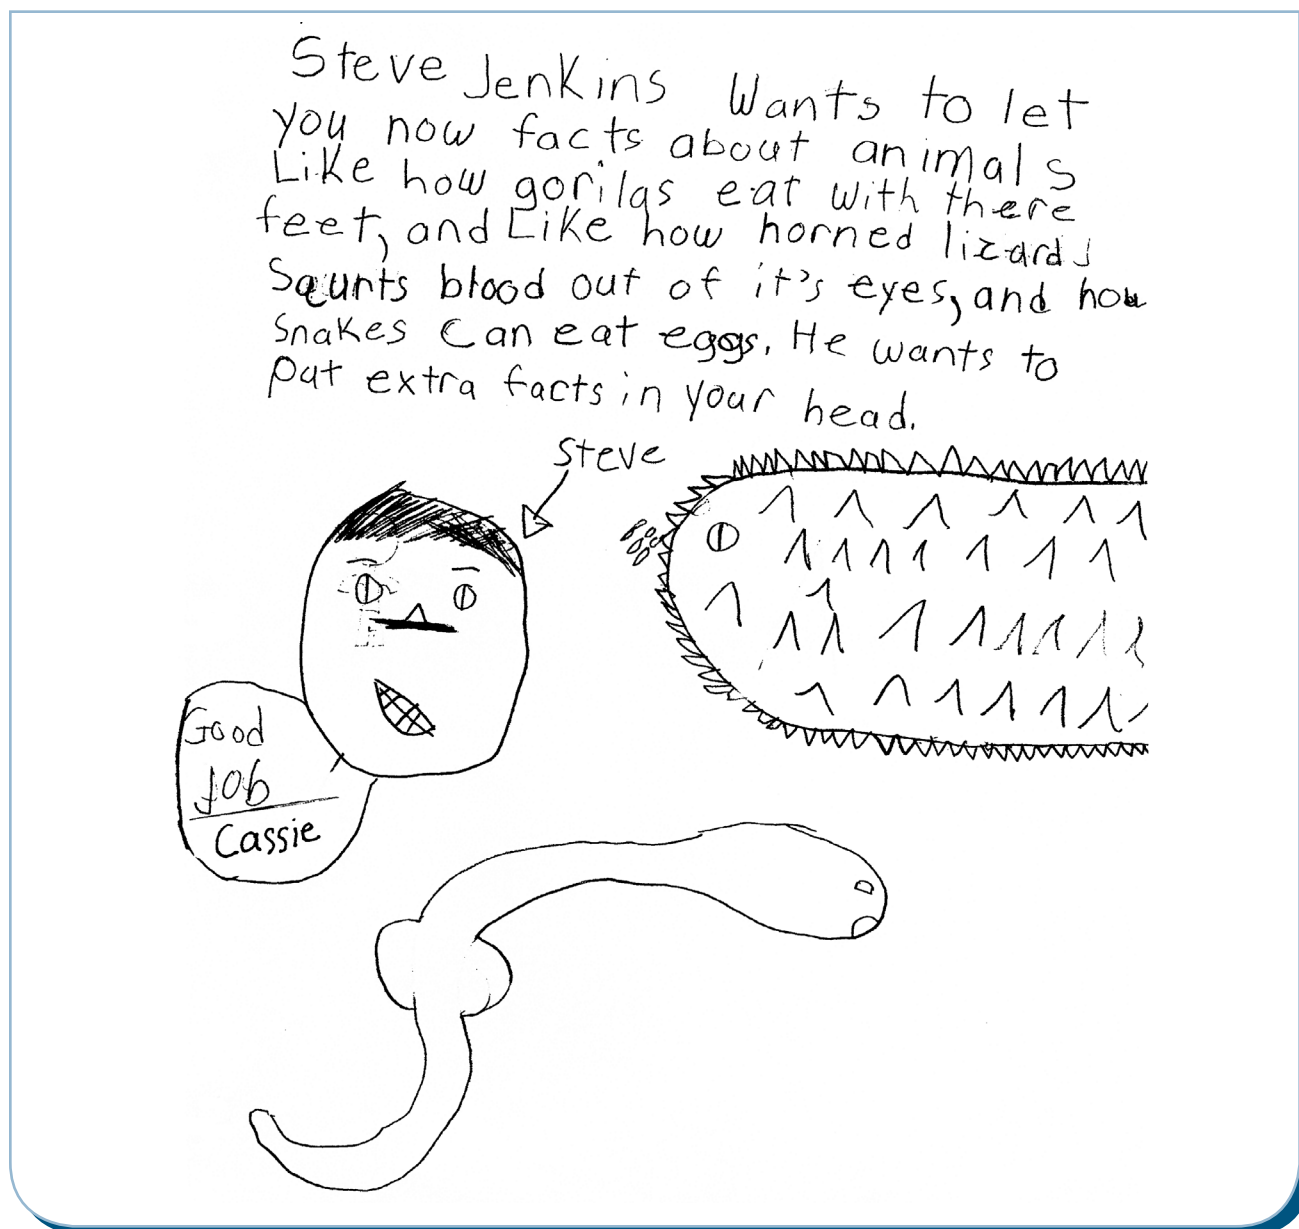 Steve Jenkins Wants to let
you now facts about animals
Like how gorilas eat with there
feet, and Like how horned lizards
Squrts blood out of it's eyes, and how
snakes can eat eggs. He wants to
put extra facts in your head.
Steve
Good
Job
Cassie